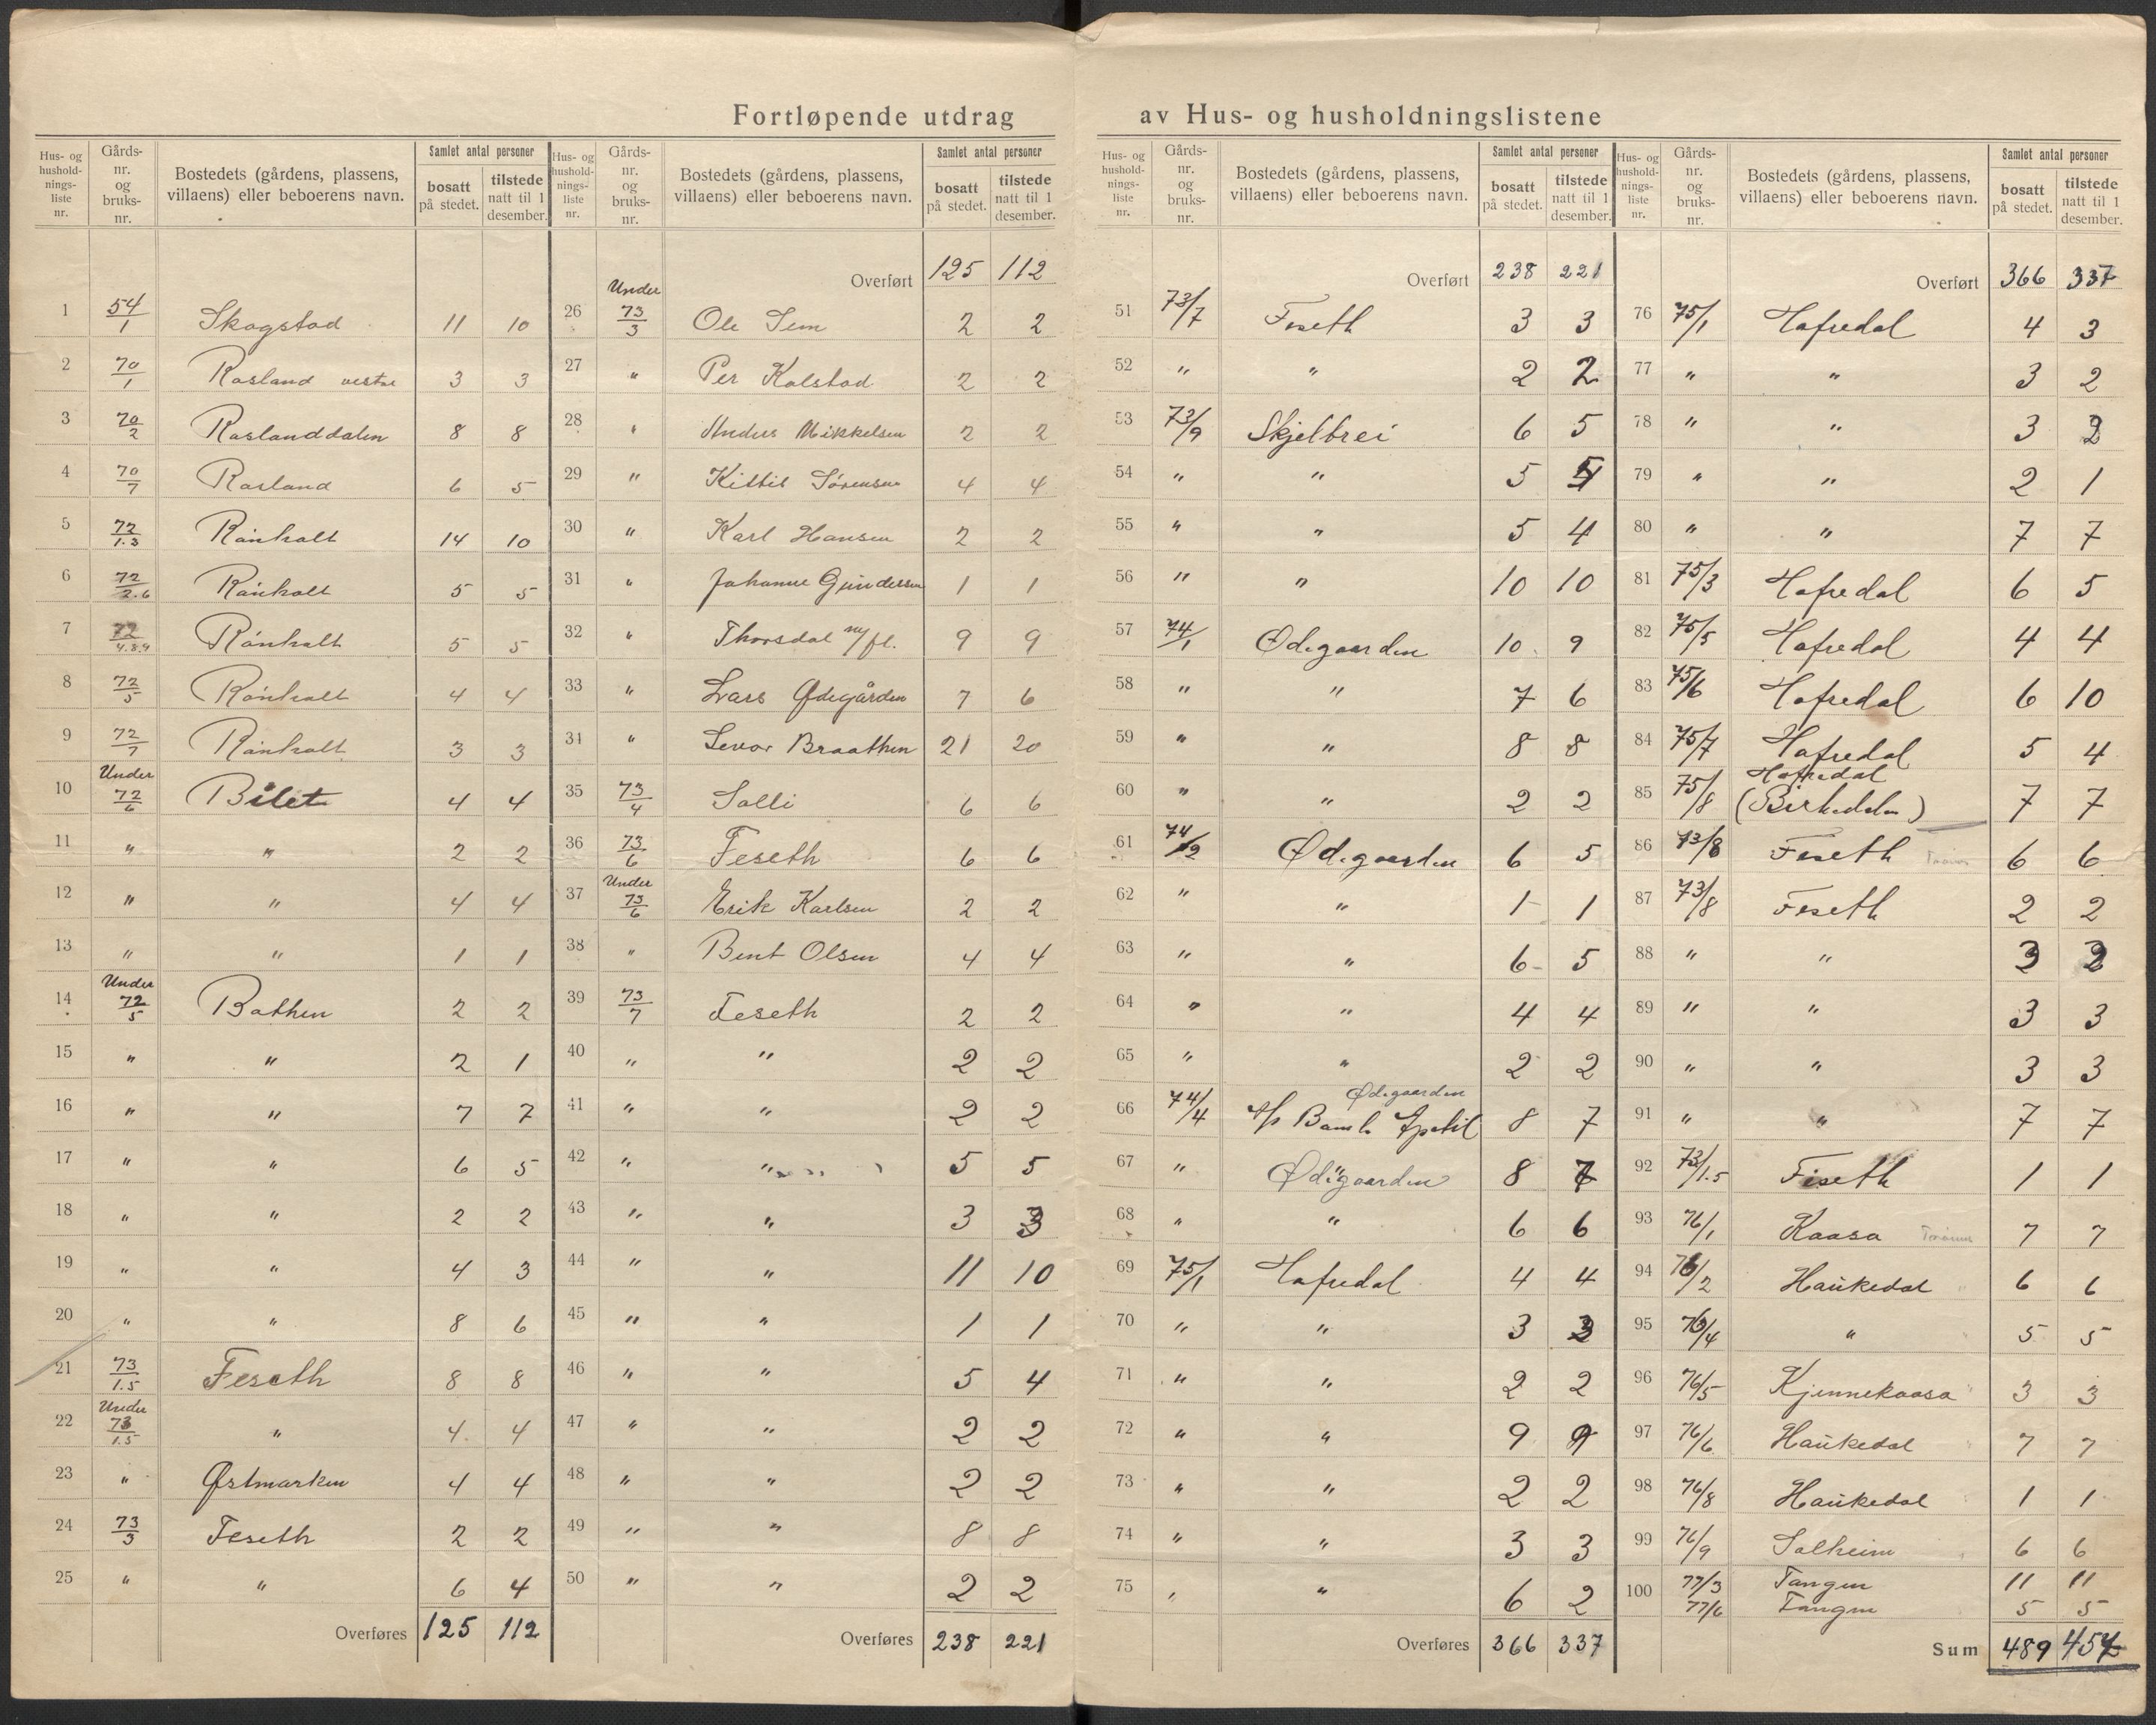 Fortløpende utdrag av Hus- og husholdningslistene
Hus- og husholdningsliste nr. | Gårdsnr. og bruksnr. | Bostedets (gårdens, plassens, villaens) eller beboerens navn. | Samlet antal personer bosatt på stedet. | tilstede natt til 1 desember.
1 54/1 Skogstad 11 10
2 70/1 Rosland vestre 3 3
3 70/2 Roslanddalen 8 8
4 70/7 Rosland 6 5
5 72/1.3 Rånholt 14 10
6 72/2.6 Rånholt 5 5
7 72/4.8.9 Rånholt 5 5
8 72/5 Rånholt 4 4
9 72/7 Rånholt 3 3
10 Under 72/6 Bilet 4 4
11 " " 2 2
12 " " 4 4
13 " " 1 1
14 Under 72/5 Bathen 2 2
15 " " 2 1
16 " " 7 7
17 " " 6 5
18 " " 2 2
19 " " 4 3
20 " " 8 6
21 73/1.5 Feseth 8 8
22 Under 73/1.5 " 4 4
23 " Østmarken 4 4
24 73/3 Feseth 2 2
25 " " 6 4
Overføres 125 112
Hus- og husholdningsliste nr. | Gårdsnr. og bruksnr. | Bostedets (gårdens, plassens, villaens) eller beboerens navn. | Samlet antal personer bosatt på stedet. | tilstede natt til 1 desember.
Overført 125 112
26 Under 73/3 Ole Sem 2 2
27 " Per Kolstad 2 2
28 " Anders Mikkelsen 2 2
29 " Kittil Sørensen 4 4
30 " Karl Hansen 2 2
31 " Johanne Gundersen 1 1
32 " Thorsdal 9 9
33 " Lars Ødegården 7 6
34 " Levor Braathen 21 20
35 73/4 Solli 6 6
36 73/6 Feseth 6 6
37 Under 73/6 Erik Karlsen 2 2
38 " Bent Olsen 4 4
39 73/7 Feseth 2 2
40 " " 2 2
41 " " 2 2
42 " " 5 5
43 " " 3 3
44 " " 11 10
45 " " 1 1
46 " " 5 4
47 " " 2 2
48 " " 2 2
49 " " 8 8
50 " " 2 2
Overføres 238 221
Hus- og husholdningsliste nr. | Gårdsnr. og bruksnr. | Bostedets (gårdens, plassens, villaens) eller beboerens navn. | Samlet antal personer bosatt på stedet. | tilstede natt til 1 desember.
Overført 238 221
51 73/7 Feseth 3 3
52 " " 2 2
53 73/9 Skjelbrei 6 5
54 " " 5 4
55 " " 5 4
56 " " 10 10
57 74/1 Ødegaarden 10 9
58 " " 7 6
59 " " 8 8
60 " " 2 2
61 74/2 Ødegaarden 6 5
62 " " 1 1
63 " " 6 5
64 " " 4 4
65 " " 2 2
66 74/4 Ødegaarden A/s Bamle Apatit 8 7
67 " Ødegaarden 8 7
68 " " 6 6
69 75/1 Hafredal 4 4
70 " " 3 3
71 " " 2 2
72 " " 9 9
73 " " 2 2
74 " " 3 3
75 " " 6 2
Overføres 366 337
Hus- og husholdningsliste nr. | Gårdsnr. og bruksnr. | Bostedets (gårdens, plassens, villaens) eller beboerens navn. | Samlet antal personer bosatt på stedet. | tilstede natt til 1 desember.
Overført 366 337
76 75/1 Hafredal 4 3
77 " " 3 2
78 " " 3 2
79 " " 2 1
80 " " 7 7
81 75/3 Hafredal 6 5
82 75/5 Hafredal 4 4
83 75/6 Hafredal 6 10
84 75/7 Hafredal 5 4
85 75/8 Hafredal (Birkedalen) 7 7
86 73/8 Feseth 6 6
87 73/8 Feseth 2 2
88 " " 3 2
89 " " 3 3
90 " " 3 3
91 " " 7 7
92 73/1.5 Feseth 1 1
93 76/1 Kaasa 7 7
94 76/2 Haukedal 6 6
95 76/4 " 5 5
96 76/5 Kjennekaasa 3 3
97 76/6 Haukedal 7 7
98 76/8 Haukedal 1 1
99 76/9 Solheim 6 6
100 77/3 Tangen 11 11
77/6 Tangen 5 5
Sum 489 457